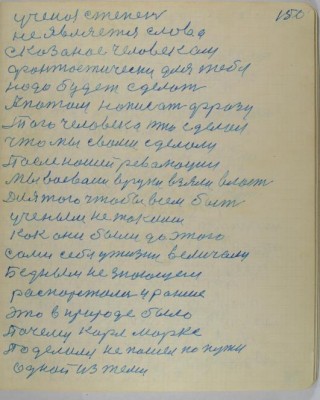 150
ученоя степень
не является словад
сказаное человеком
фронтостически для тебя
надо будет сделот
Апотом написат фразу
Того человека это сделал
что мы своим сделоли
После ношей революции
мы воевали вруки взяли власт
Для того чтобы всем быт
учеными не токими
Кок они были до этого
сами себя ужизни величали
Бедным не знающем
распортоли и рание
это в природе было
Почему Карл Маркс
Поделили не пошел по пути
одной из теми